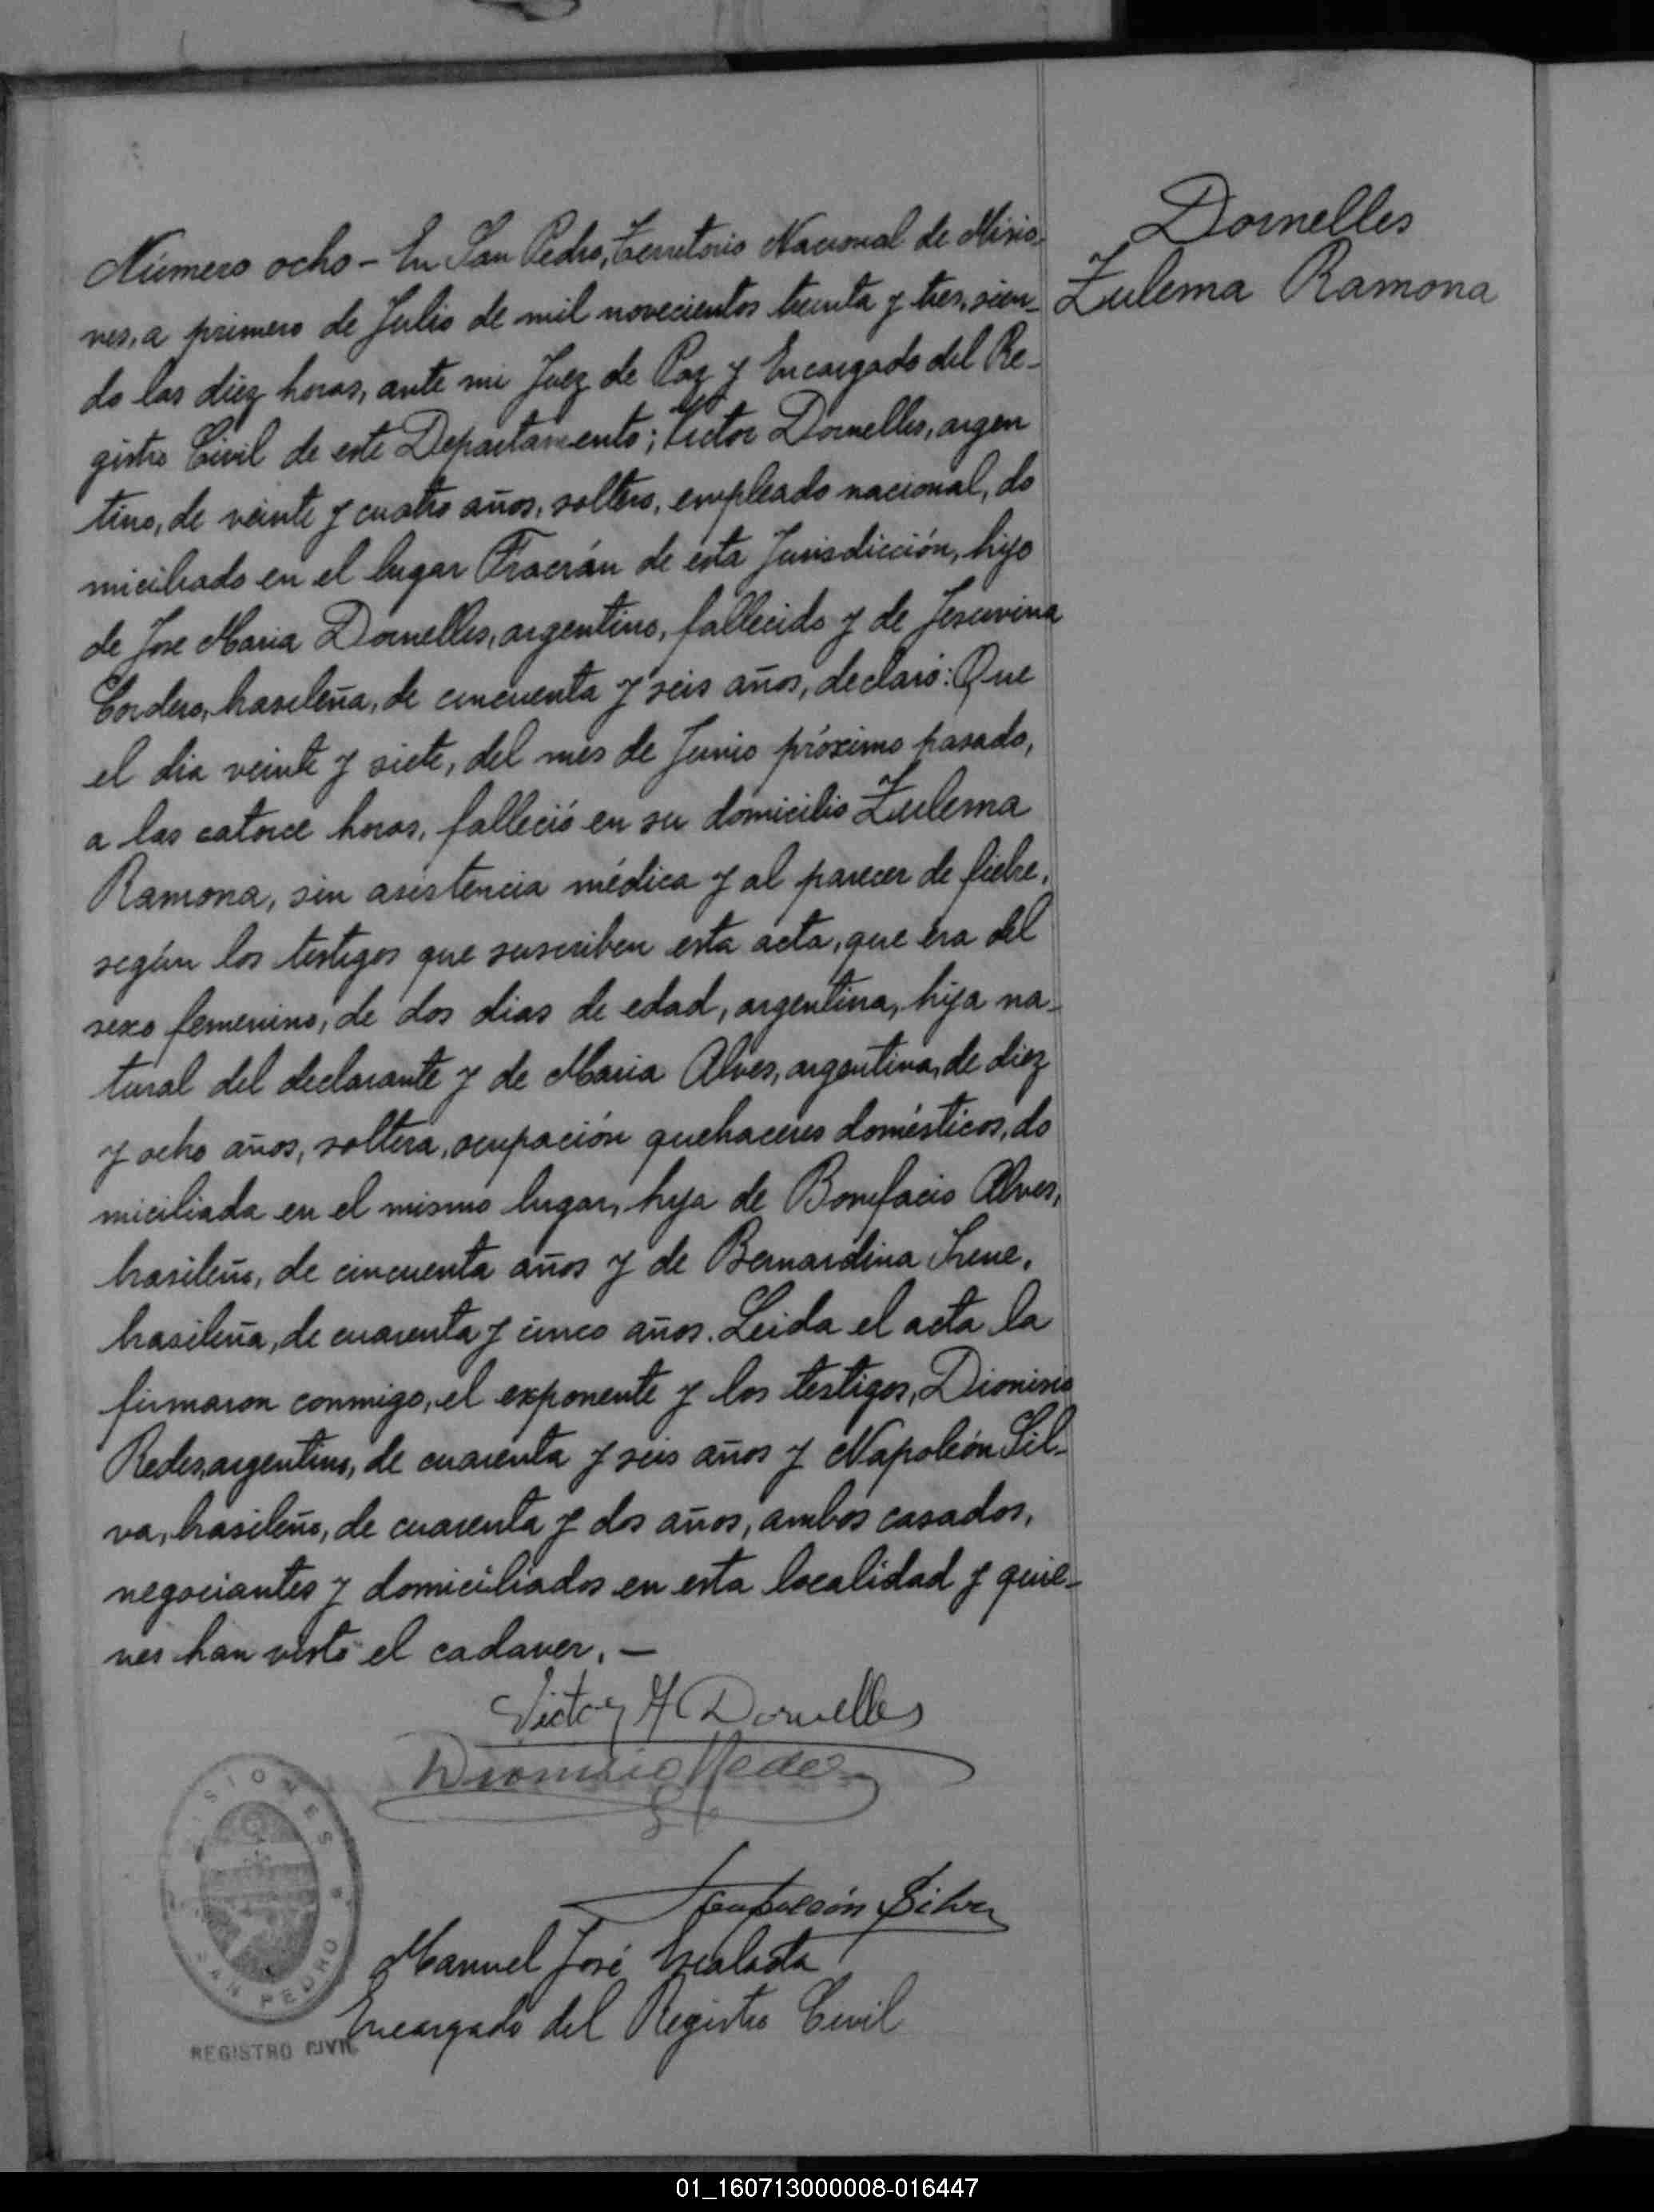 Dornelles
Zulema Ramona
Número ocho - En San Pedro, Territorio Nacional de Misio-
nes, a primero de Julio de mil novecientos treinta y tres, sien-
do las diez horas, ante mi Juez de Paz y Encargado del Re-
gistro Civil de este Departamento; Victor Dornelles, argen
tino, de veinte y cuatro años, soltero, empleado nacional, do
miciliado en el lugar Fracrán de esta Jurisdicción, hijo
de Jose Maria Dornelles, argentino, fallecido y de Jesuvina
Cordero, brasileña, de cincuenta y seis años, declaró: Que
el dia veinte y siete, del mes de Junio próximo pasado,
a las catorce horas, falleció en su domicilio Zulema
Ramona, sin asistencia médica y al parecer de fiebre,
según los testigos que suscriben esta acta, que era del
sexo femenino, de dos dias de edad, argentina, hija na-
tural del declarante y de Maria Alves, argentina, de diez
y ocho años, soltera, ocupación quehaceres domésticos, do
miciliada en el mismo lugar, hija de Bonifacio Alves,
brasileño, de cincuenta años y de Bernardina Irene,
brasileña, de cuarenta y cinco años. Leida el acta la
firmaron conmigo, el exponente y los testigos, Dionisio
Redes, argentino, de cuarenta y seis años y Napoleón Sil-
va, brasileño, de cuarenta y dos años, ambos casados,
negociantes y domiciliados en esta localidad y quie-
nes han visto el cadaver. -
Victor M Dornelles
Dionisio Redes
Napoleón Silva
Manuel José
Encargado del Registro Civil
MISIONES
SAN PEDRO
REGISTRO CIVIL
01_160713000008-016447